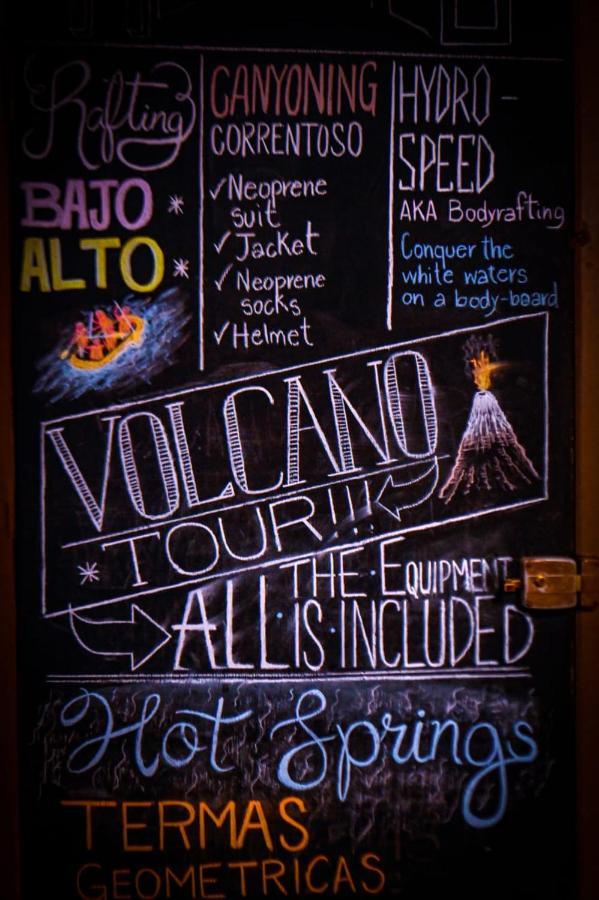 Rafting
BAJO *
ALTO *
CANYONING
CORRENTOSO
✓ Neoprene
suit
✓ Jacket
✓ Neoprene
socks
✓ Helmet
HYDRO -
SPEED
AKA Bodyrafting
Conquer the
white waters
on a body-board
VOLCANO
* TOUR!!!
ALL·THE·EQUIPMENT
·IS·INCLUDED
Hot Springs
TERMAS
GEOMETRICAS